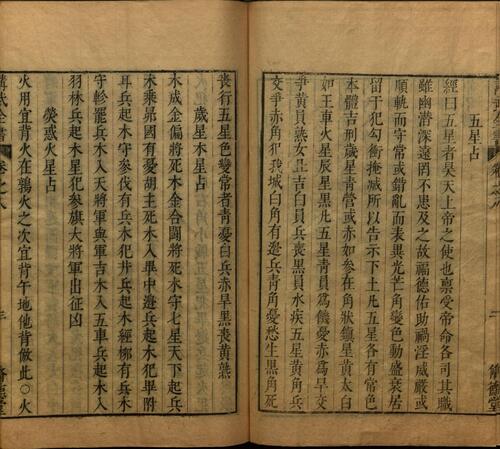 五星占
經曰五星者昊天上帝之使也稟受帝命各司其職
雖幽潛深遠罔不患及之故福德佑助禍淫威嚴或
順軌而守常或錯亂而表異光芒角變色動盛衰居
留干犯勾衝掩滅所以告示下土凡五星各有常色
本體吉刑歲星青營或赤如參在角狀鎮星黃太白
如王車火星辰星黑凡五星青員為饑憂赤為旱交
爭黃員熟女上吉白員兵喪黑員水疾五星黃角兵
交爭赤角犯我城白角有邊兵青角憂愁生黑角死
喪行五星色變常者青憂白兵赤旱黑喪黃熊
歲星木星占
木成金偏將死木金合鬪將死木守七星天下起兵
木乘昴國有憂胡主死木入畢中邊兵起木犯畢附
耳兵起木守參伐有兵木犯井兵起木經柳有兵木
守軫罷兵木入天將軍與軍吉木入五車兵起木入
羽林兵起木星犯參旗大將軍出征凶
熒惑火星占
火用宜背火在鶉火之次宜背午地他背倣此○火
講武全書
卷之八
三